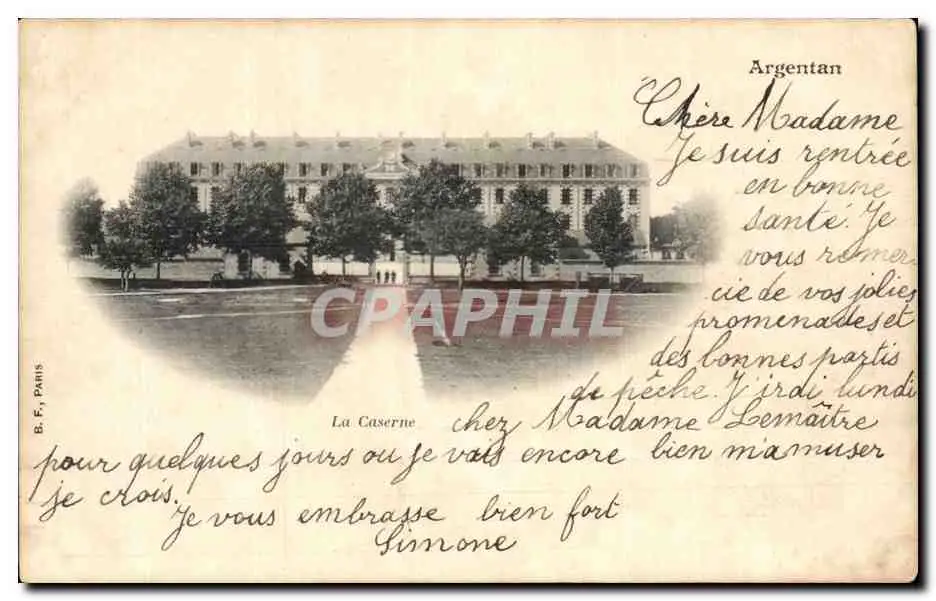 Argentan
Chère Madame
Je suis rentrée
en bonne
santé. Je
vous remer
cie de vos jolies
promenades et
des bonnes partis
de pêche. J'irai lundi
CPAPHIL
La Caserne
chez Madame Lemaître
pour quelques jours où je vais encore bien m'amuser
je crois.
Je vous embrasse bien fort
Simone
B. F., PARIS